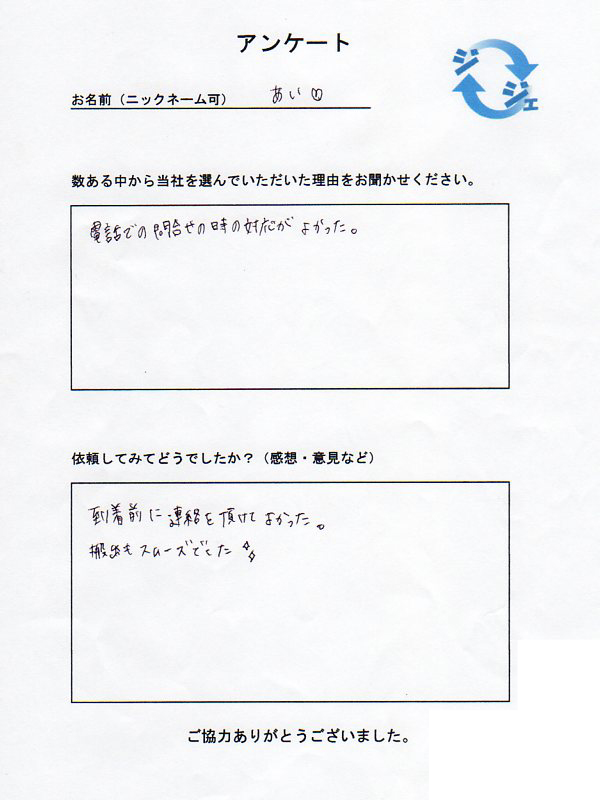 アンケート
ジ
ジェ
お名前（ニックネーム可） あい
数ある中から当社を選んでいただいた理由をお聞かせください。
電話での問合せの時の対応がよかった。
依頼してみてどうでしたか？（感想・意見など）
到着前に連絡を頂けてよかった。
搬出もスムーズでした
ご協力ありがとうございました。